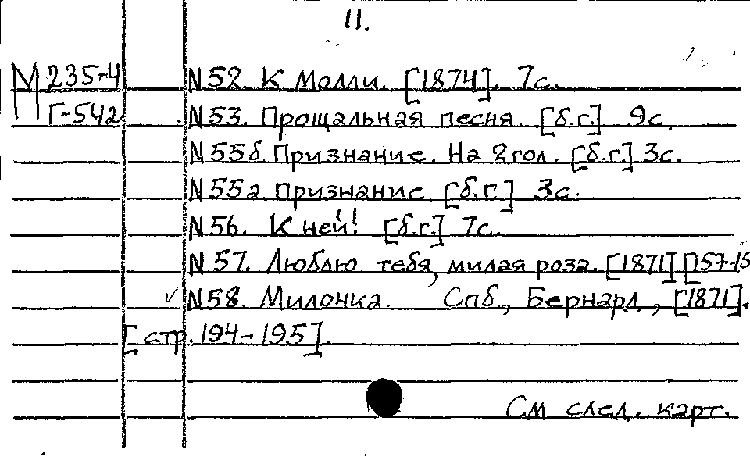 11.
М 235-4 N52. К Молли. [1874]. 7с.
Г-542 N53. Прощальная песня. [б.г.] 9с.
N55б. Признание. На 2 гол. [б.г.] 3с.
N55а. Признание [б.г.] 3с.
N56. К ней! [б.г.] 7с.
N57. Люблю тебя, милая роза. [1871] [157-15
√ N58. Милочка. Спб., Бернард, [1871].
[стр. 194-195].
См след. карт.